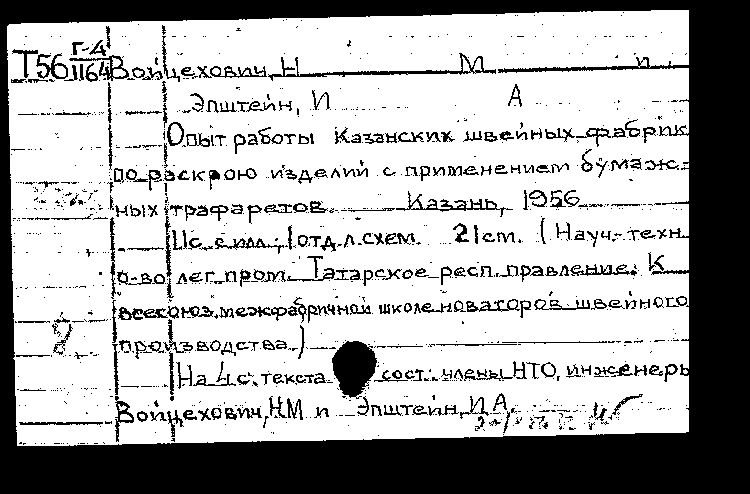 Т56 Г-4
1164
Войцехович, Н М и
Эпштейн, И А
Опыт работы Казанских швейных фабрик
по раскрою изделий с применением бумаж-
ных трафаретов. Казань, 1956
11с. с илл.; 1 отд. л. схем. 21 ст. (Науч.-техн.
о-во лег. пром. Татарское респ. правление. К
всесоюз. межфабричной школе новаторов швейного
производства)
На 4 с. текста сост.: члены НТО, инженеры
Войцехович, НМ и Эпштейн, И А